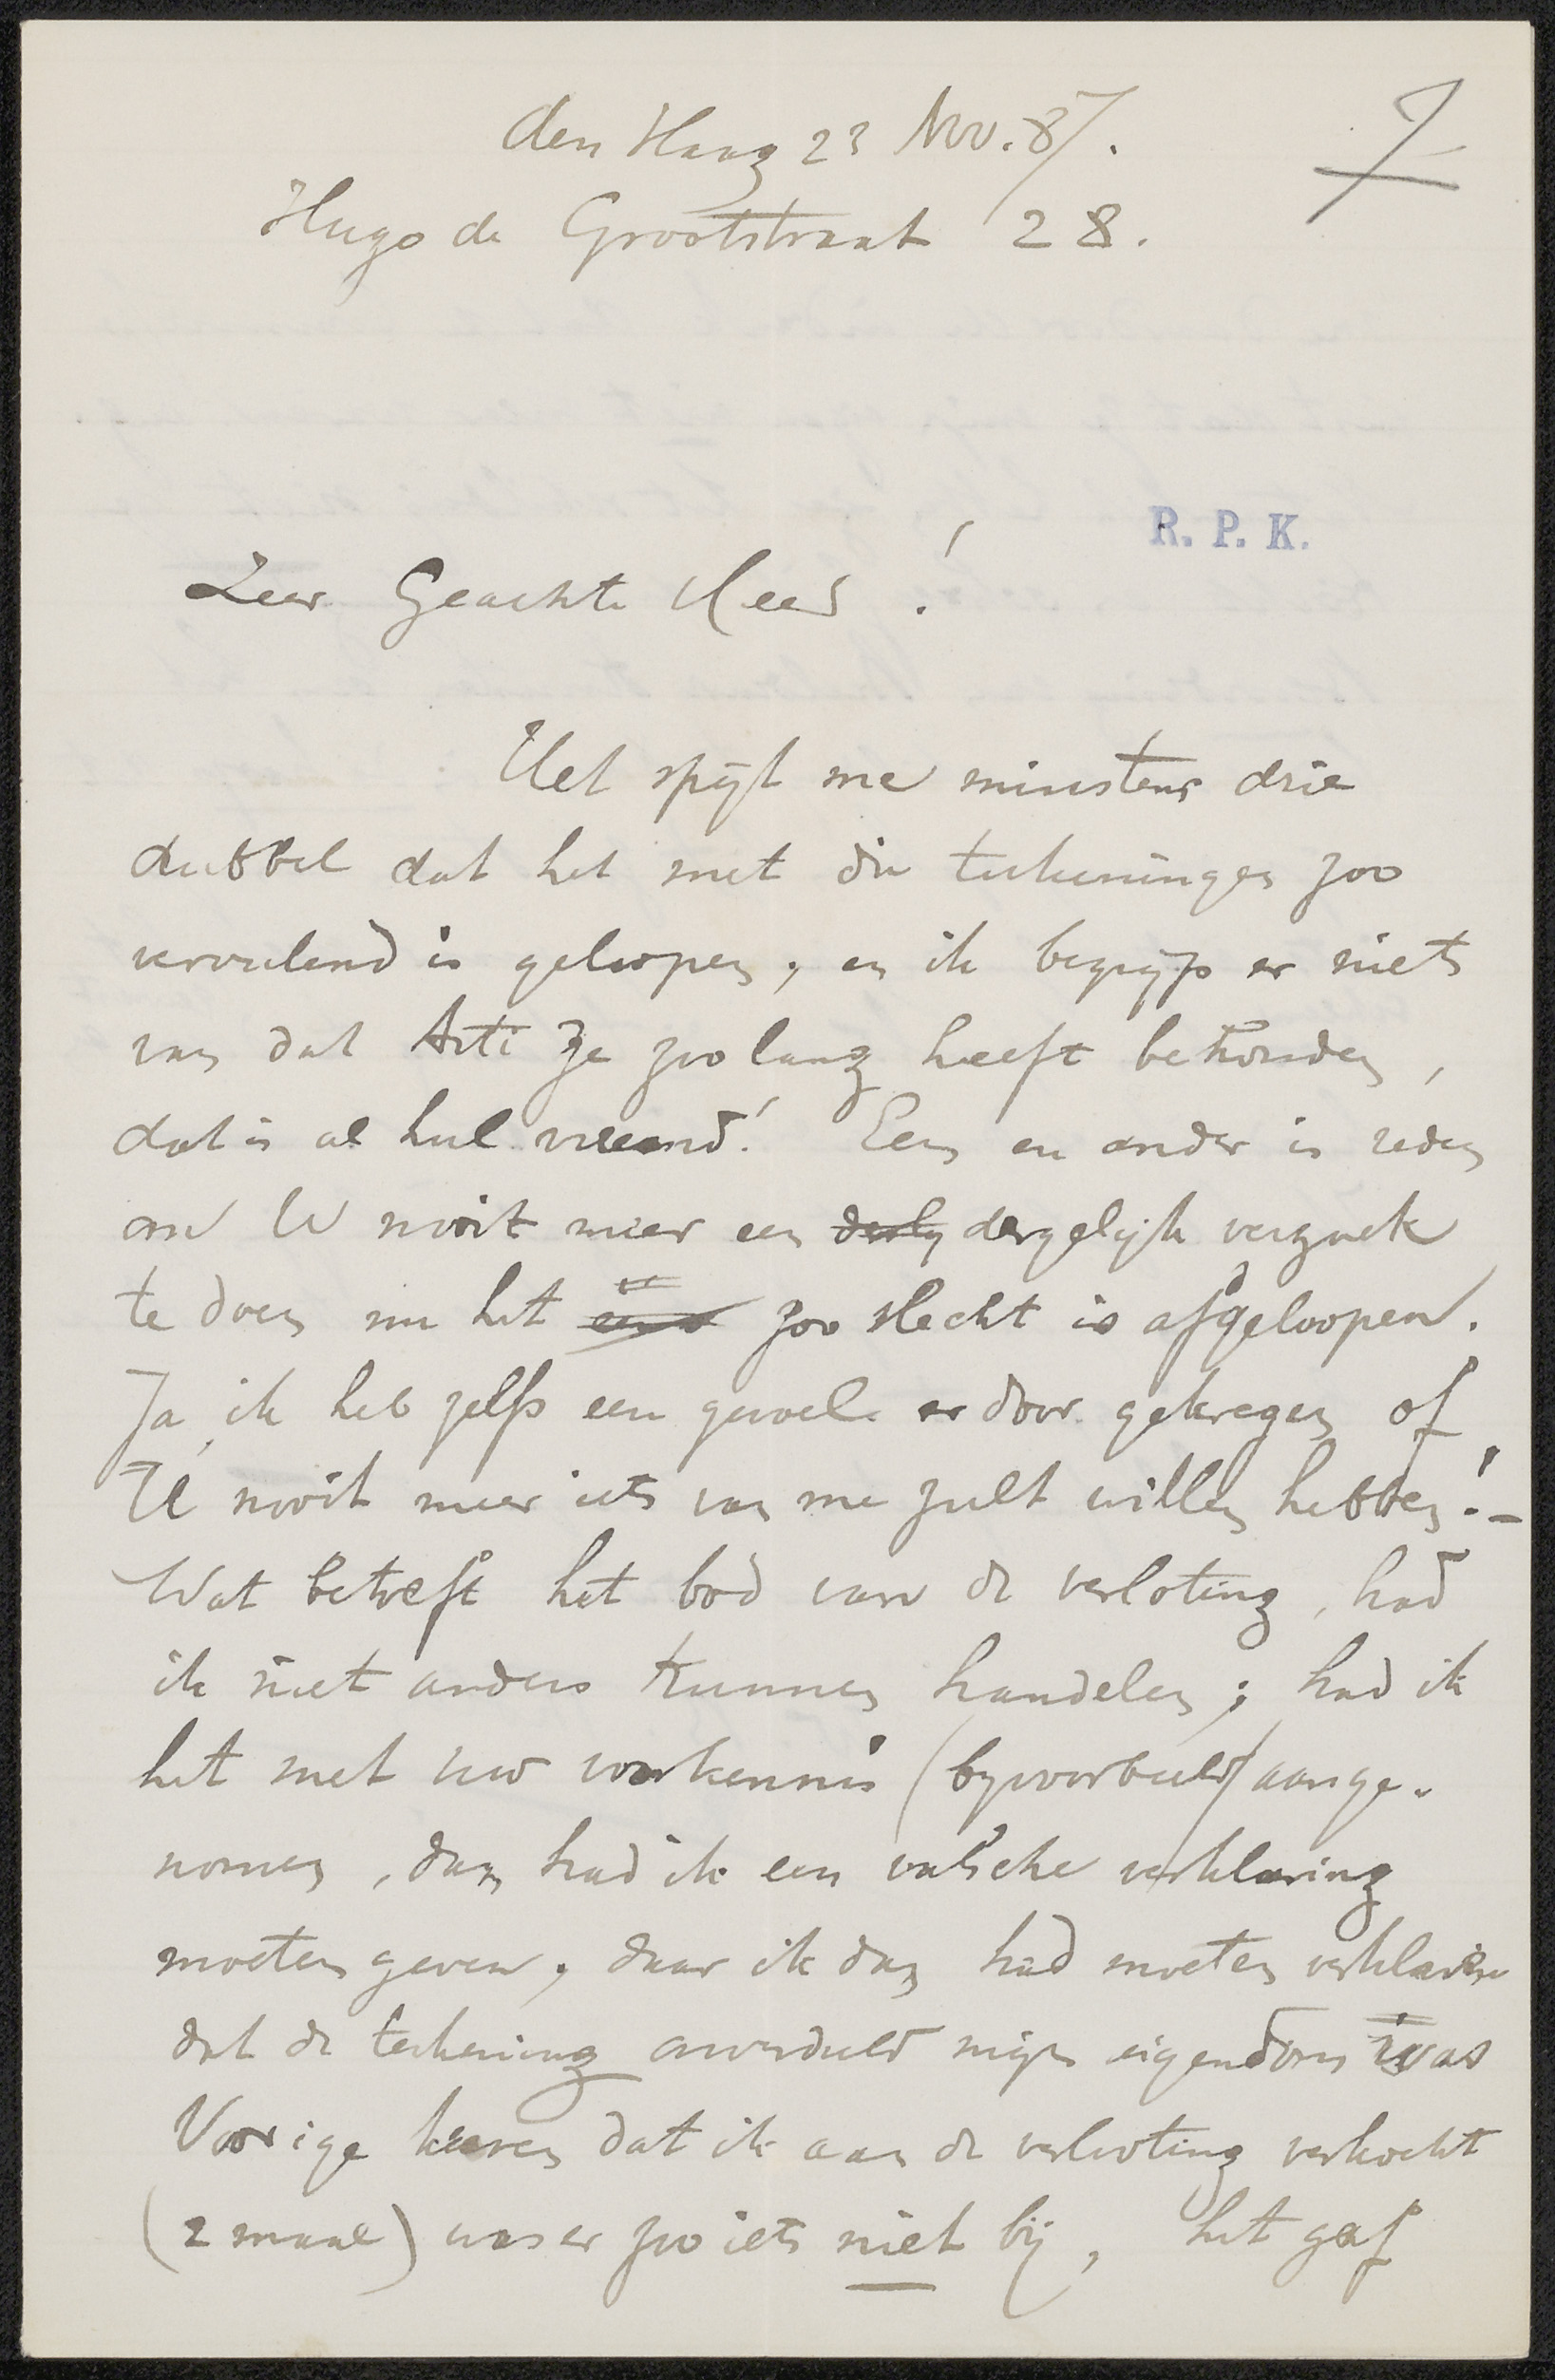 den Haag 23 Nov. 87.
7
Hugo de Grootstraat 28.
R. P. K.
Zeer Geachte Heer !
Het spijt me minstens drie
dubbel dat het met die teekeningen zoo
vervelend is geloopen, en ik begrijp er niets
van dat Arti ze zoo lang heeft behouden,
dat is al heel vreemd! Een en ander is reden
om U nooit meer een derg dergelijk verzoek
te doen nu het zoo slecht is afgeloopen.
Ja, ik heb zelfs een gevoel er door gekregen of
U nooit meer iets van me zult willen hebben! –
Wat betreft het bod van de verloting, had
ik niet anders kunnen handelen; had ik
het met uw voorkennis (bijvoorbeeld) aange-
nomen, dan had ik een valsche verklaring
moeten geven, daar ik dan had moeten verklaren
dat de teekening onverdeeld mijn eigendom was
Vorige keeren dat ik aan de verloting verkocht
(2 maal) was er zoo iets niet bij, het gaf